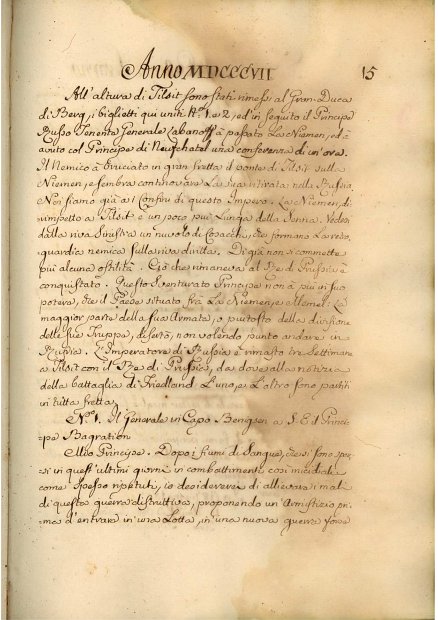 Anno MDCCCVII 15
All' altura di Tilsit sono stati rimessi al Gran-Duca
di Berg, i biglietti qui uniti N.º 1. e 2, ed in seguito il Principe
Russo Tenente Generale Labanoff à passato Le Niemen, ed à
avuto col Principe di Neufchatel una conferenza di un' ora.
Il Nemico à bruciato in gran fretta il ponte di Tilsit sulla
Niemen, e sembra continovare La sua ritirata nella Russia.
Noi siamo già ai Confini di questo Impero. La Niemen, di=
rimpetto a Tilsit è un poco più Lunga della Senna. Vedesi
dalla riva Sinistra un nuvolo di Cosacchi, che formano La retro,
guardia nemica sulla riva diritta. Di già non si commette
più alcuna ostilità. Ciò che rimaneva al Re di Prussia è
conquistato. Questo Sventurato Principe non à più in suo
potere, che il Paese situato frà La Niemen, e Memel. La
maggior parte della sua Armata, o piutosto della divisione
delle sue Truppe, disertò, non volendo punto andare in
Russia. L'Imperatore di Russia è rimasto tre Settimane
a Tilsit con il Re di Prussia, da dove alla notizia
della battaglia di Friedland L'uno, e L'altro sono partiti
in tutta fretta.
N.º 1. Il Generale in Capo Bengsen a S. E. il Princi=
pe Bagration
Mio Principe. Dopo i fiumi di Sangue, che si sono spar=
si in quest' ultimi giorni in combattimenti così micidiali
come spesso ripetuti, io desidererei di allievare i mali
di questa guerra distruttiva, proponendo un' Armistizio pri=
ma d'entrare in una Lotta, in una nuova guerra forse